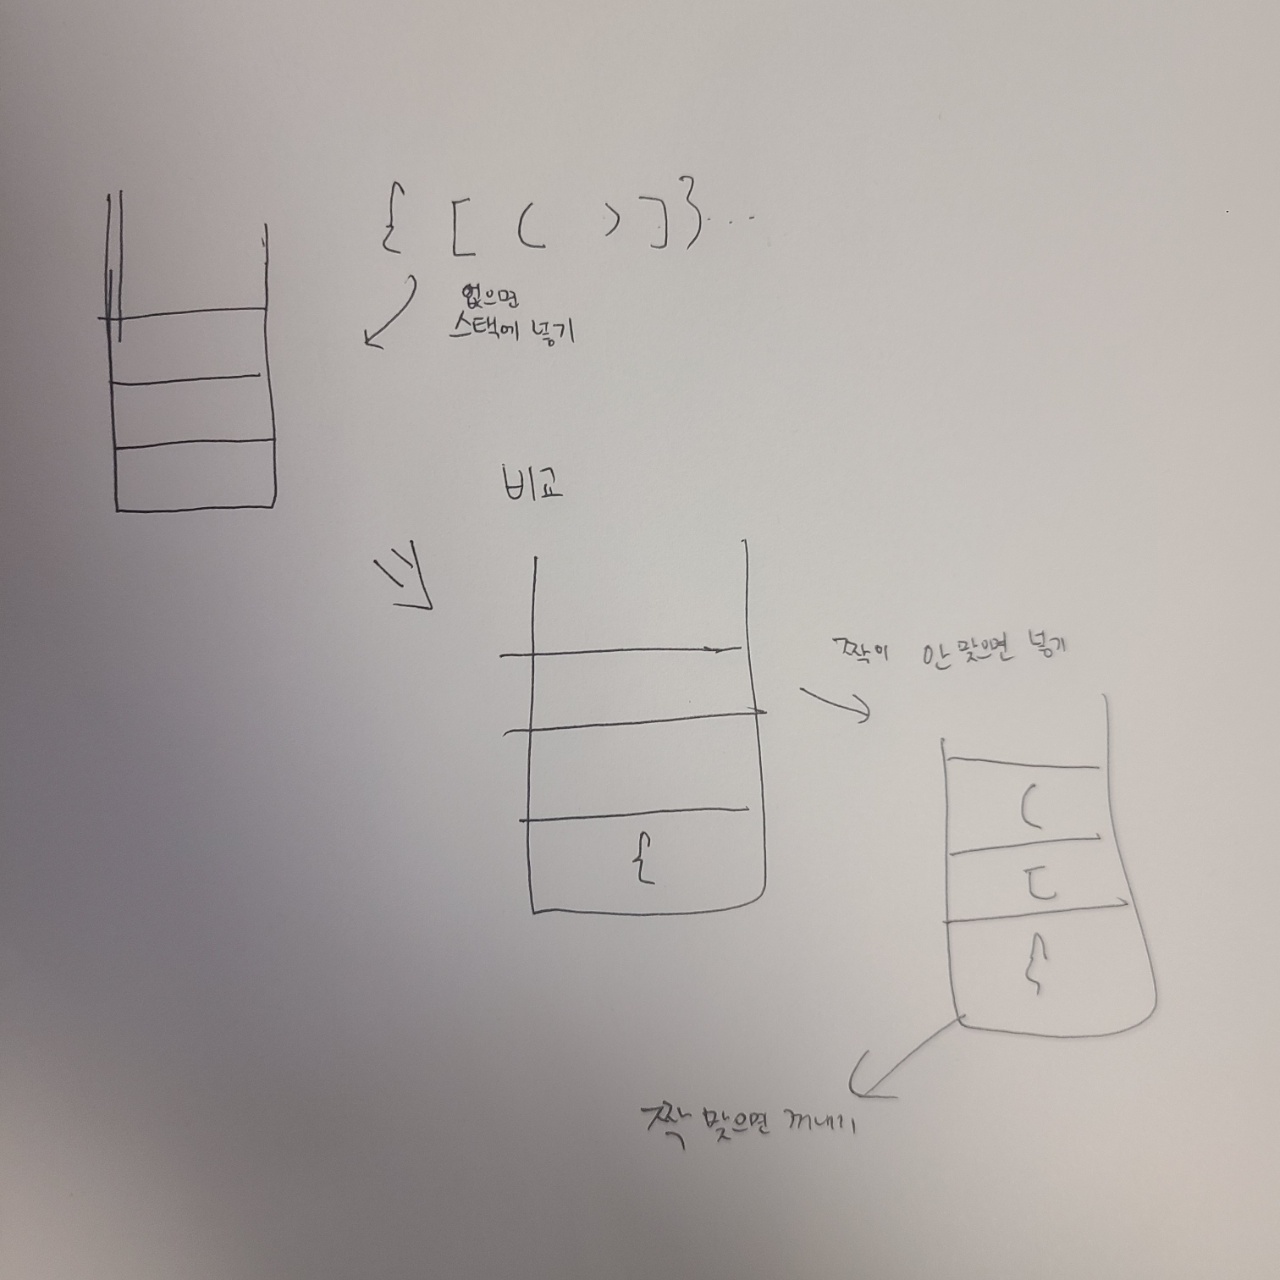 { [ ( ) ] } ...
없으면
스택에 넣기
비교
{
짝이 안 맞으면 넣기
(
[
{
짝 맞으면 꺼내기